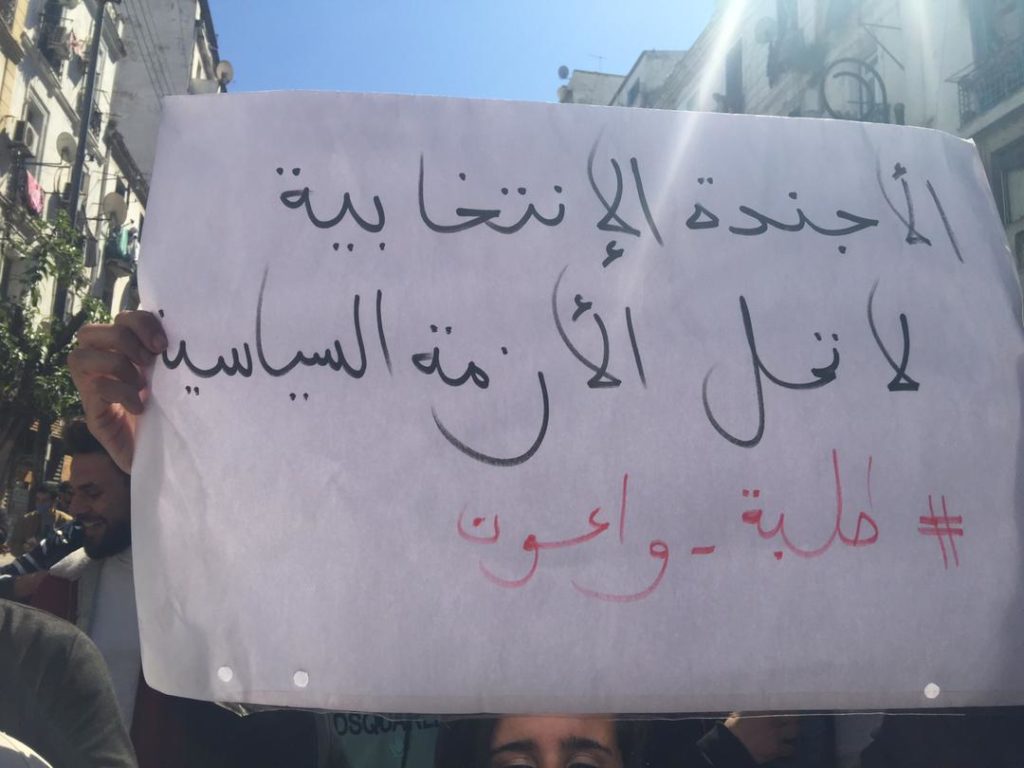 الأجندة الإنتخابية
لا تحل الأزمة السياسية
# طلبة - واعون